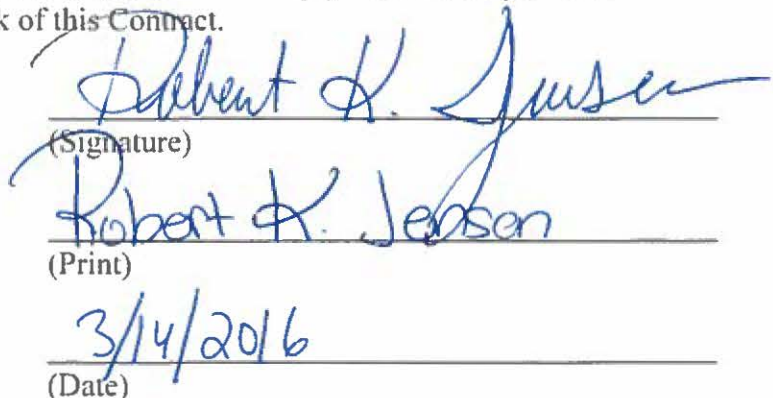 k of this Contract.
Robert K. Jensen
(Signature)
Robert K. Jepson
(Print)
3/14/2016
(Date)